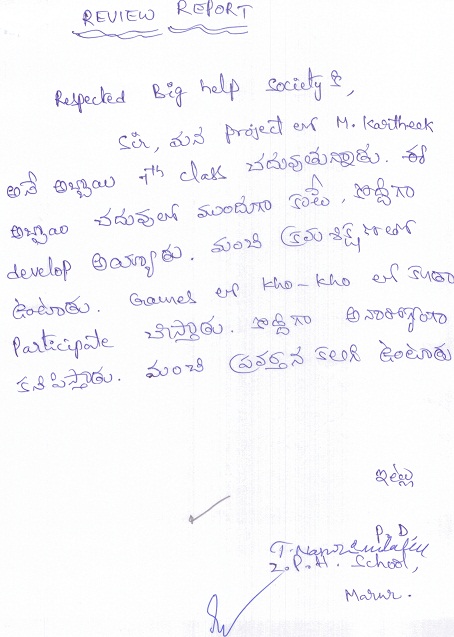 REVIEW REPORT
Respected Big help society కి,
Sir, మన project లో M. Kartheek
అనే అబ్బాయి 7th class చదువుతున్నాడు. ఈ
అబ్బాయి చదువులో ముందుగా కాలే, కొద్దిగా
develop అయ్యాడు. మంచి క్రమశిక్షణతో
ఉంటాడు. Games లో kho-kho లో కూడా
Participate చేస్తాడు. కొద్దిగా అనారోగ్యంగా
కనిపిస్తాడు. మంచి ప్రవర్తన కలిగి ఉంటాడు
ఇట్లు
P.D,
Z.P.H. School,
Marur.